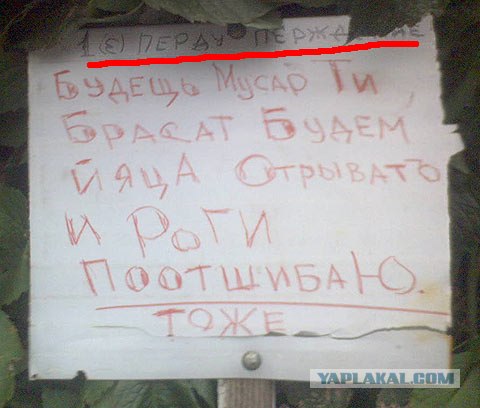 1(Е) ПЕРДУ ПЕРЖДЕНИЕ
БУДЕЩЬ МУСАР ТИ
БРАСАТ БУДЕМ
ЙЯЦА ОТРЫВАТЬ
И РОГИ
ПООТШИБАЮ.
ТОЖЕ
YAPLAKAL.COM